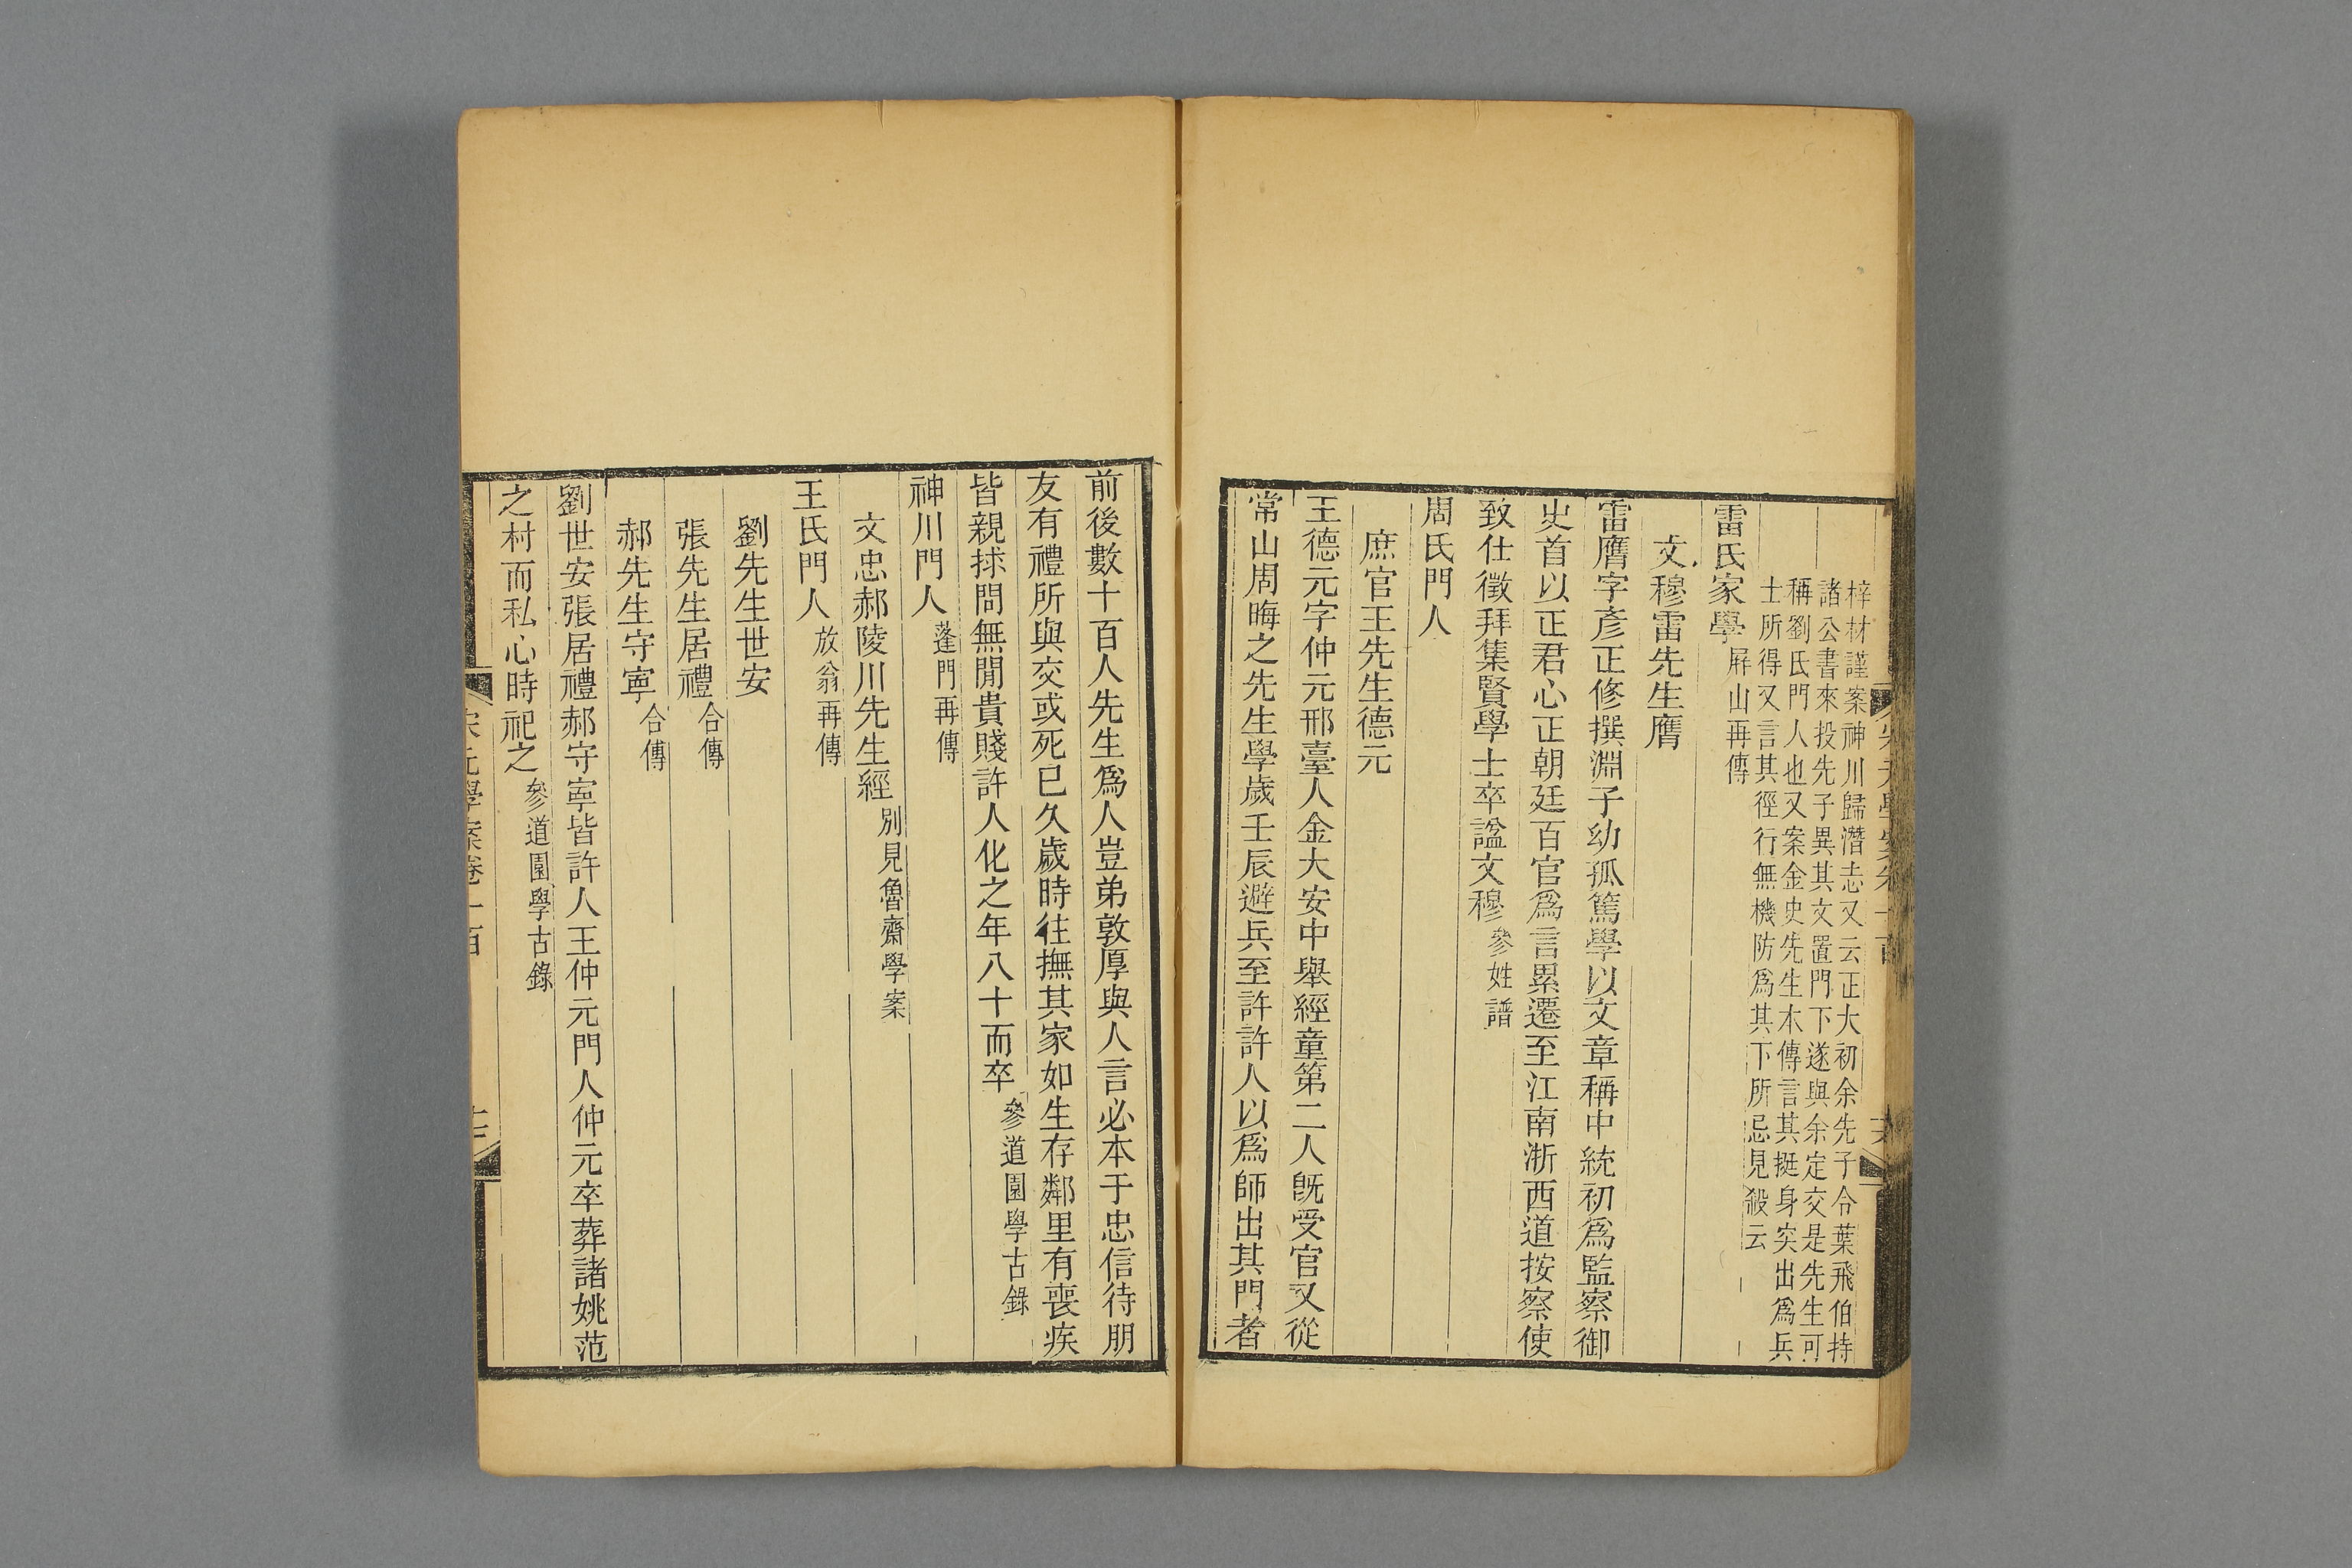 梓材謹案神川歸潛志又云正大初余先子令葉飛伯持
諸公書來投先子異其文置門下遂與余定交是先生可
稱劉氏門人也又案金史先生本傳言其挺身突出爲兵
士所得又言其徑行無機防爲其下所忌見殺云
雷氏家學屛山再傳
文穆雷先生膺
雷膺字彥正修撰淵子幼孤篤學以文章稱中統初爲監察御
史首以正君心正朝廷百官爲言累遷至江南浙西道按察使
致仕徵拜集賢學士卒諡文穆參姓譜
周氏門人
庶官王先生德元
王德元字仲元邢臺人金大安中舉經童第二人旣受官又從
常山周晦之先生學歲壬辰避兵至許許人以爲師出其門者
前後數十百人先生爲人豈弟敦厚與人言必本于忠信待朋
友有禮所與交或死已久歲時往撫其家如生存鄰里有喪疾
皆親捄問無閒貴賤許人化之年八十而卒參道園學古錄
神川門人蓬門再傳
文忠郝陵川先生經別見魯齋學案
王氏門人放翁再傳
劉先生世安
張先生居禮合傳
郝先生守寧合傳
劉世安張居禮郝守寧皆許人王仲元門人仲元卒葬諸姚范
之村而私心時祀之參道園學古錄
宋元學案卷一百